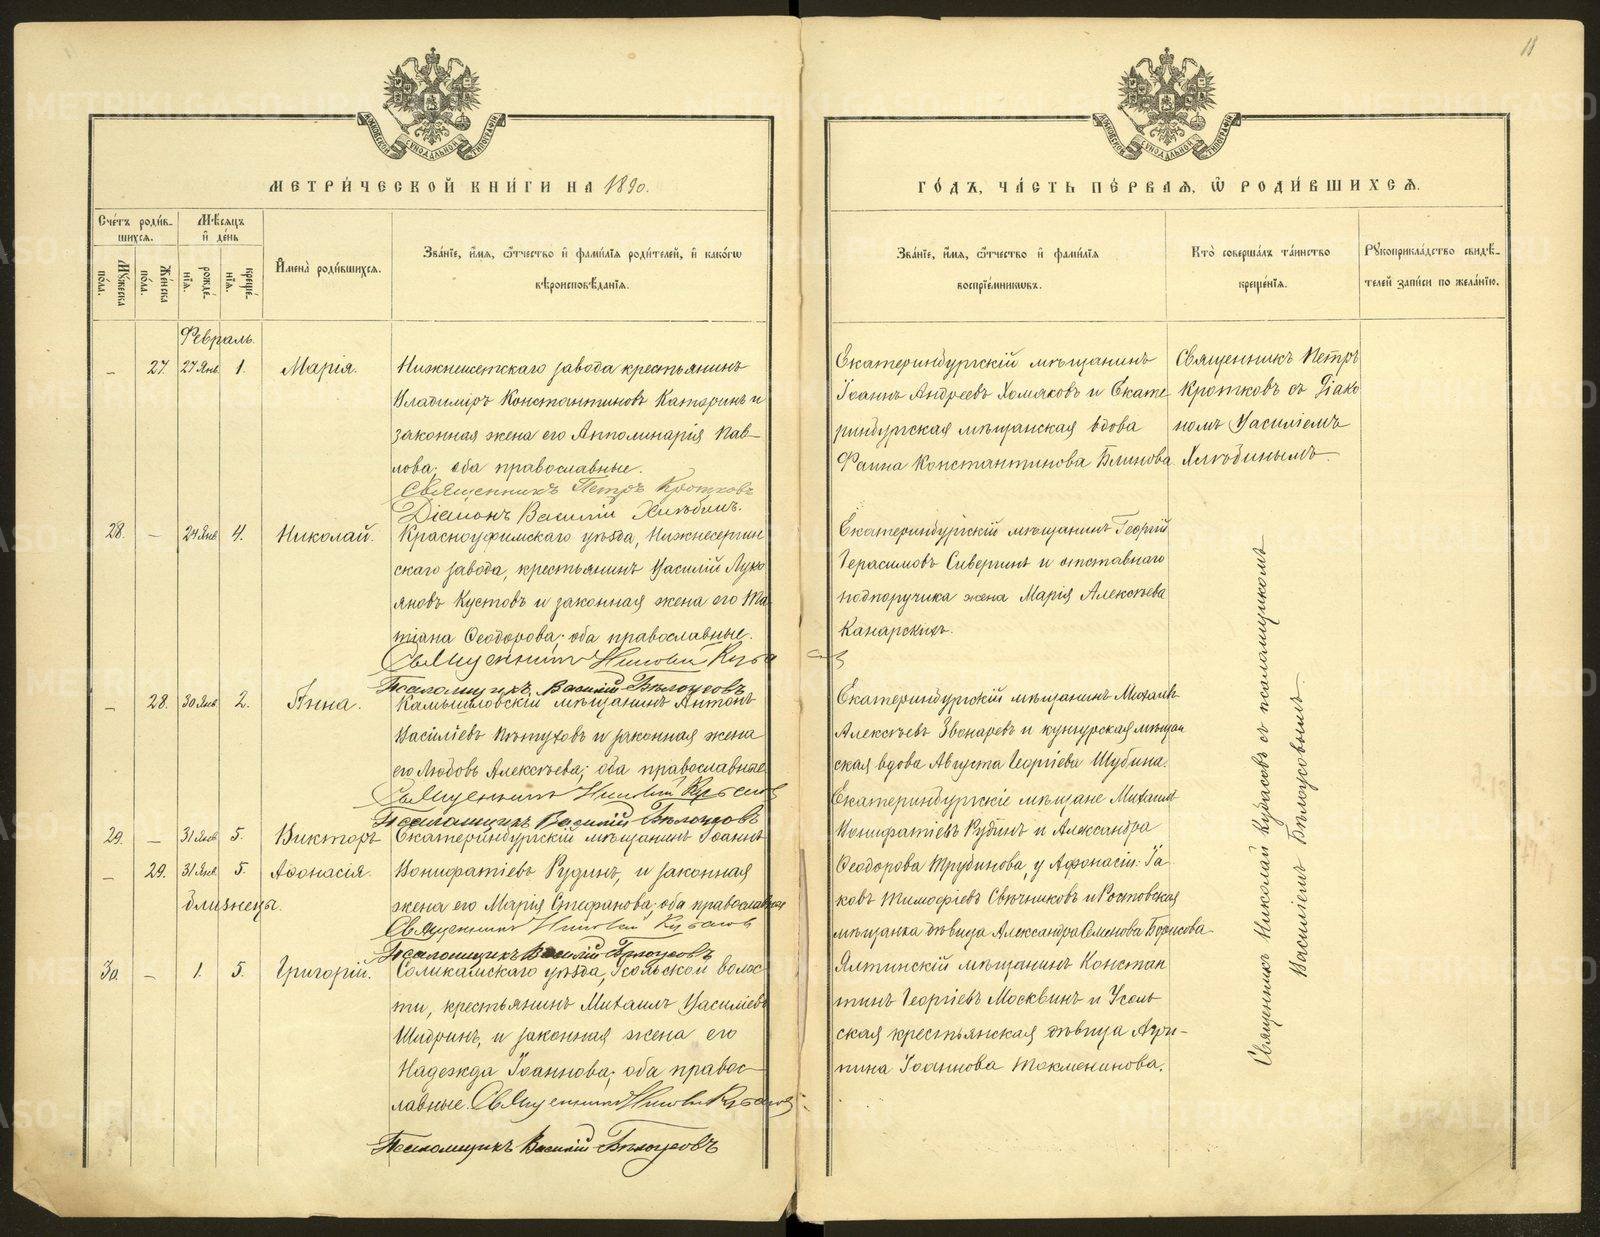 18
МОСКОВСКОЙ СѴНОДАЛЬНОЙ ТИПОГРАФІИ
МОСКОВСКОЙ СѴНОДАЛЬНОЙ ТИПОГРАФІИ
МЕТРИ́ЧЕСКОЙ КНИ́ГИ НА 1890.
ГО́ДЪ, ЧА́СТЬ ПЕ́РВАѦ, Ѽ РОДИ́ВШИХСѦ.
Сче́тъ роди́в-
шихсѧ.
Мѣ́сѧцъ
и҆ де́нь
Мꙋ́жеска по́ла.
Же́нска по́ла.
рожде́нїѧ.
креще́нїѧ.
И҆мена̀ роди́вшихсѧ.
Зва́нїе, и҆́мѧ, ѻ҆́тчество и҆ фами́лїѧ роди́телей, и҆ како́гѡ
вѣроисповѣ́данїѧ.
Зва́нїе, и҆́мѧ, ѻ҆́тчество и҆ фами́лїѧ
воспрїе́мникѡвъ.
Кто̀ соверша́лъ та́инство
креще́нїѧ.
Рꙋкоприкла́дство свидѣ́-
телей за́писи по жела́нїю.
Февраль.
– 27. 27 Янв. 1. Марія.
Нижнеисетскаго завода крестьянинъ
Владиміръ Константиновъ Катеринъ и
законная жена его Апполинарія Пав-
лова; оба православные.
Священникъ Петръ Кротковъ
Діаконъ Василій Хлѣбинъ.
Екатеринбургскій мѣщанинъ
Іоаннъ Андреевъ Хомяковъ и Екате-
ринбургская мѣщанская вдова
Фаина Константинова Блинова.
Священникъ Петръ
Кротковъ съ Діако
номъ Василіемъ
Хлѣбинымъ.
28. – 24 Янв. 4. Николай.
Красноуфимскаго уѣзда, Нижнесергин
скаго завода, крестьянинъ Василій Лукі
яновъ Кустовъ и законная жена его Та-
тіана Ѳеодорова; оба православные.
Священникъ Николай Кубасовъ
Псаломщикъ Василій Бѣлоусовъ
Екатеринбургскій мѣщанинъ Георгій
Герасимовъ Сиверинъ и отставнаго
подпоручика жена Марія Алексѣева
Канарскихъ.
– 28. 30 Янв. 2. Анна.
Камышловскій мѣщанинъ Антонъ
Васильевъ Пѣтуховъ и законная жена
его Любовь Алексѣева; оба православные.
Священникъ Николай Кубасовъ
Псаломщикъ Василій Бѣлоусовъ
Екатеринбургскій мѣщанинъ Михаилъ
Алексѣевъ Звонаревъ и кунгурская мѣщан
ская вдова Августа Георгіева Шубина.
29. – 31 Янв. 5. Викторъ
– 29. 31 Янв. 5. Аѳонасія.
близнецы.
Екатеринбургскій мѣщанинъ Іоаннъ
Вонифатіевъ Рудинъ, и законная
жена его Марія Стефанова; оба православные
Священникъ Николай Кубасовъ
Псаломщикъ Василій Бѣлоусовъ
Екатеринбургскіе мѣщане Михаилъ
Вонифатіевъ Рудинъ и Александра
Ѳеодорова Трубинова, у Афонасіи: Іа-
ковъ Тимофіевъ Свѣчниковъ и Ростовская
мѣщанка дѣвица Александра Семенова Борисова.
30. – 1. 5. Григорій.
Соликамскаго уѣзда, Усольской волос-
ти, крестьянинъ Михаилъ Василіевъ
Шидринъ, и законная жена его
Надежда Іоаннова; оба правос-
лавные. Священникъ Николай Кубасовъ
Псаломщикъ Василій Бѣлоусовъ
Ялтинскій мѣщанинъ Констан
тинъ Георгіевъ Москвинъ и Усоль
ская крестьянская дѣвица Агри-
пина Іоаннова Токменинова.
Священникъ Николай Кубасовъ съ псаломщикомъ
Василіемъ Бѣлоусовымъ.
METRIKI.GASO-URAL.RU